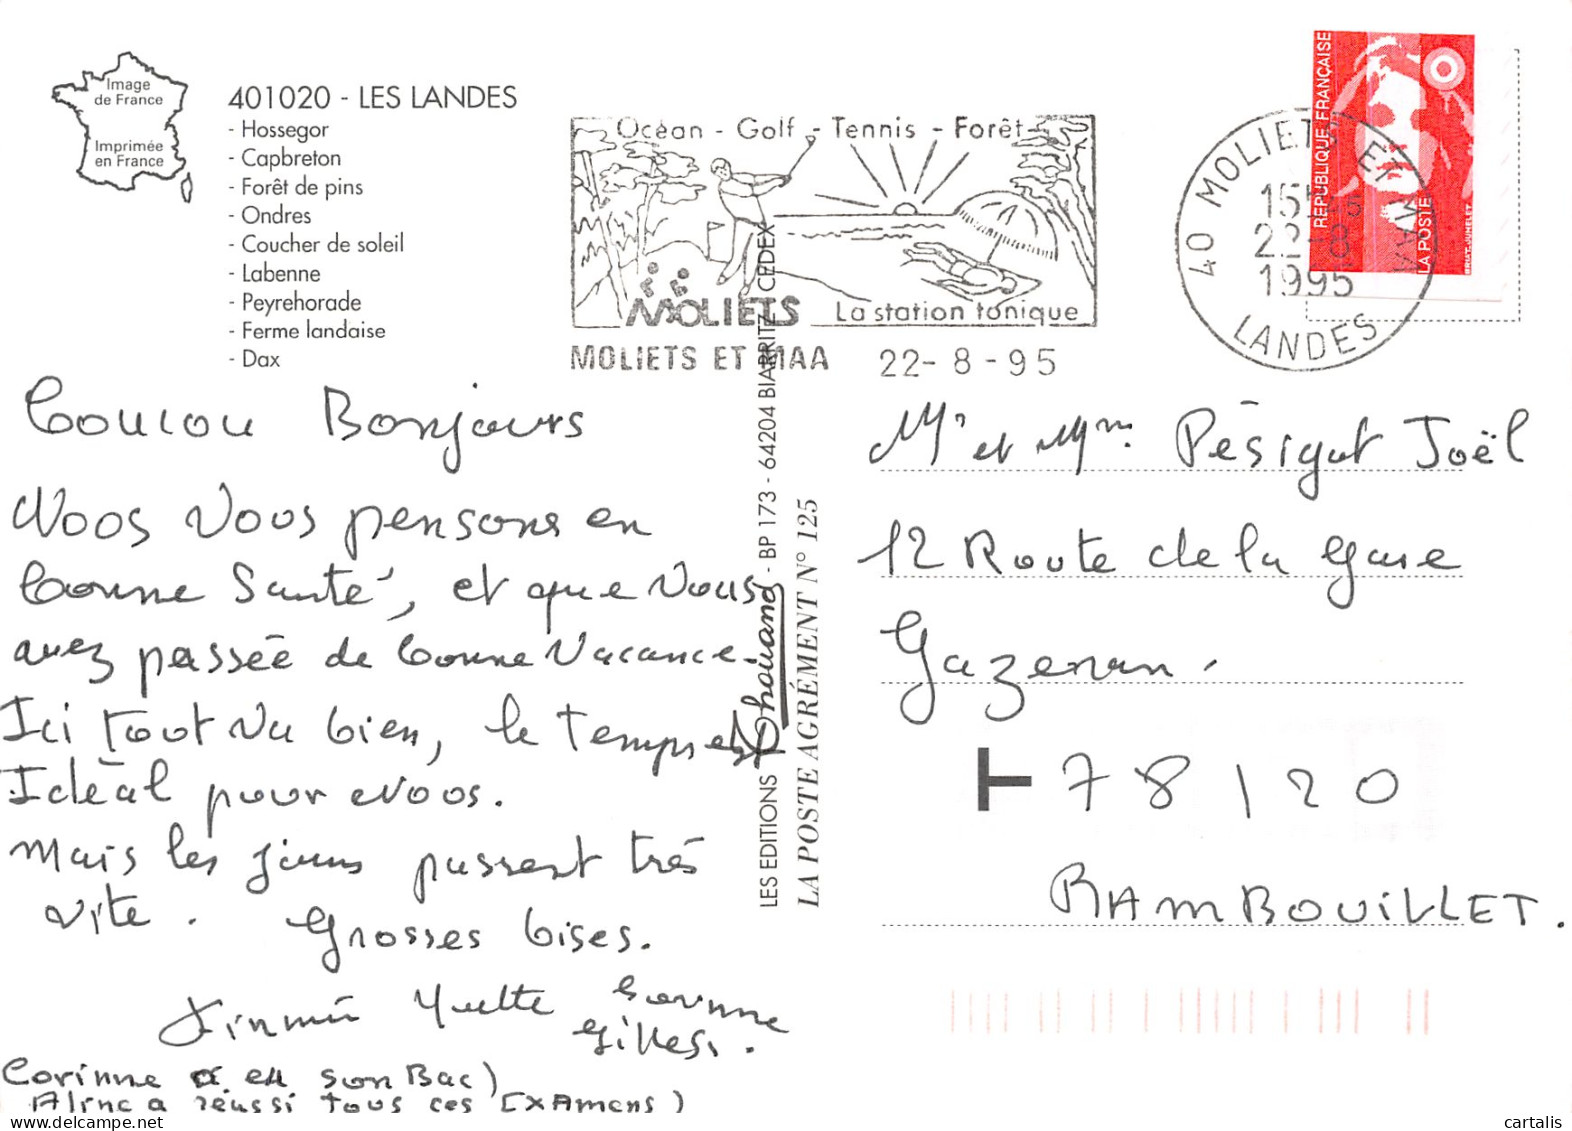 Image
de France
Imprimée
en France
401020 - LES LANDES
- Hossegor
- Capbreton
- Forêt de pins
- Ondres
- Coucher de soleil
- Labenne
- Peyrehorade
- Ferme landaise
- Dax
Océan - Golf - Tennis - Forêt
MOLIETS La station tonique
MOLIETS ET MAA 22-8-95
40 MOLIETS ET MAA
15H
22-8
1995
LANDES
RÉPUBLIQUE FRANÇAISE
LA POSTE
BRIAT-JUMELET
Coucou Bonjours
Noos Vous pensons en
bonne Santé, et que Vous
avez passée de bonne Vacance.
Ici tout Va bien, le temps est
Idéal pour Noos.
Mais les jours passent très
vite. Grosses bises.
Yvette Corinne
Gilles.
Corinne a eu son Bac)
Aline a réussi tous ces Examens)
LES EDITIONS Chouand - BP 173 - 64204 BIARRITZ CEDEX
LA POSTE AGRÉMENT N° 125
Mr et Mme Pésigot Joël
12 Route de la gare
Gazeran.
T 78120
RAMBOUILLET.
cartalis